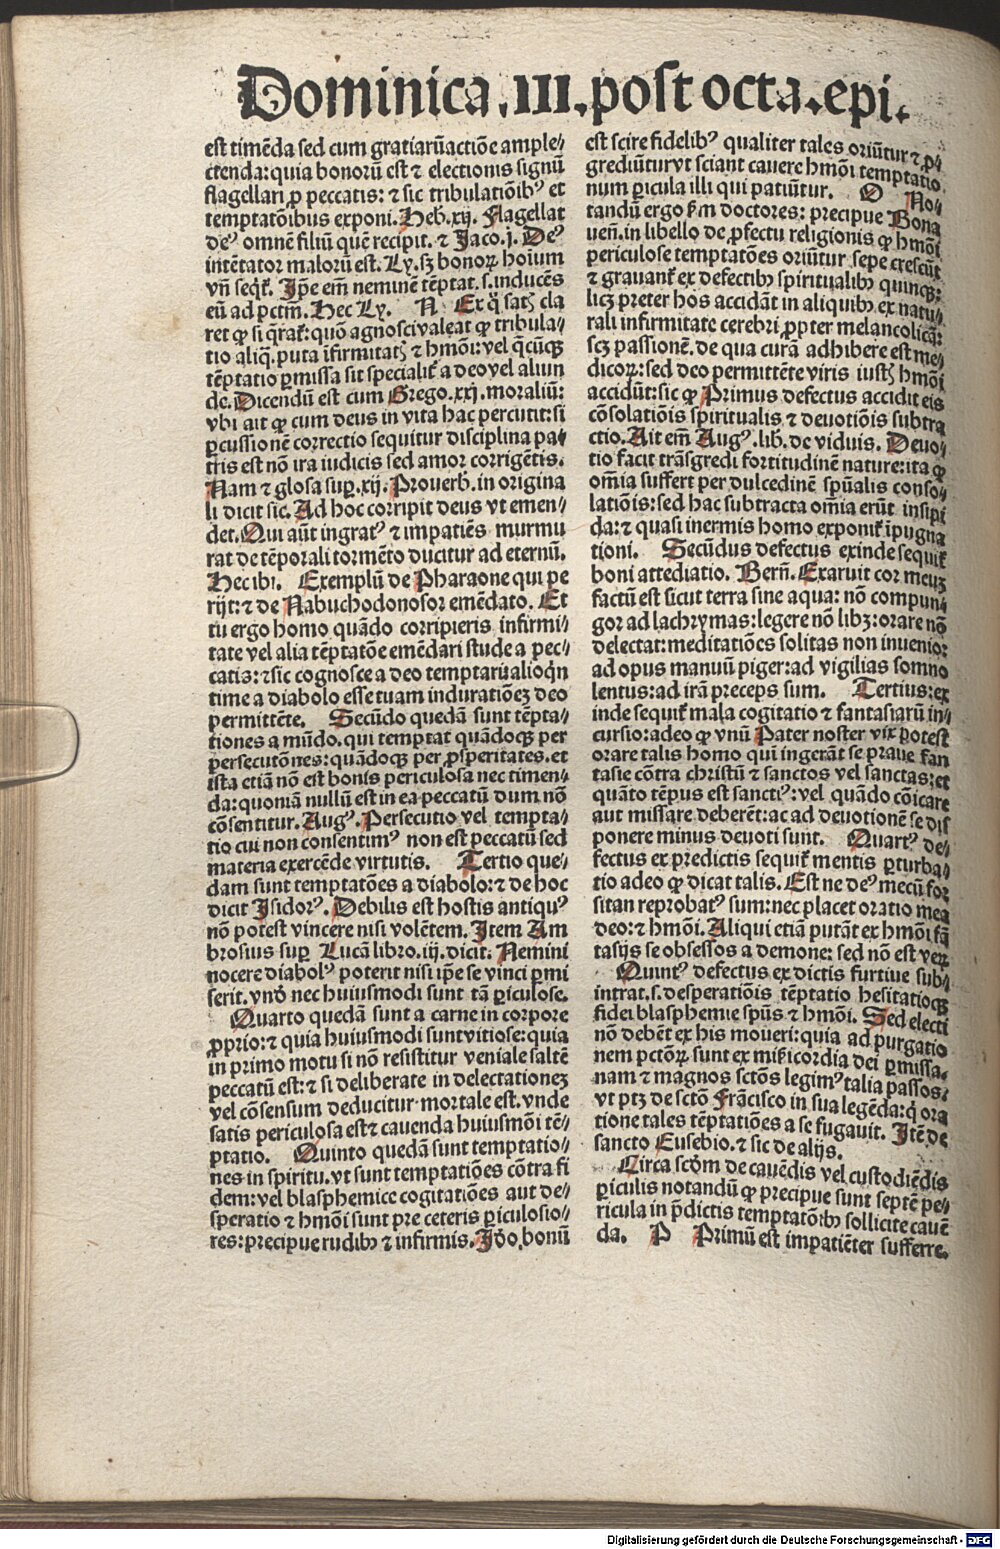 Dominica .III. post octa. epi.
est timēda sed cum gratiarū actiōe ample⸗
ctenda: quia bonorū est ⁊ electionis signū
flagellari ꝓ peccatis: ⁊ sic tribulatiōibꝰ et
temptatōibus exponi. Heb̄. xij. Flagellat
deꝰ omnē filiū quē recipit. ⁊ Jaco. j. Deꝰ
intētator malorū est. Ly. sꝫ bonoꝝ hoīum
vn̄ seqͥt̄. Ip̄e em̄ neminē tēptat. s. inducēs
eū ad pctm̄. Hec Ly. N Ex q̄ satꝭ cla
ret ꝙ si q̄rat̄: quō agnosci valeat ꝙ tribula⸗
tio aliq̄. puta īfirmitatꝭ ⁊ hmōi: vel q̄cūqꝫ
tēptatio ꝑmissa sit specialit̄ a deo vel aliun
de. Dicendū est cum Grego. xxj. moraliū:
vbi ait ꝙ cum deus in vita hac percutit: si
ꝑcussionē correctio sequitur disciplina pa⸗
tris est nō ira iudicis sed amor corrigētis.
Nam ⁊ glosa suꝑ. xij. Prouerb̄. in origina
li dicit sic. Ad hoc corripit deus vt emen⸗
det. Qui aūt ingratꝰ ⁊ impatiēs murmu
rat de tēporali tormēto ducitur ad eternū.
Hec ibi. Exemplū de Pharaone qui pe
rijt: ⁊ de Nabuchodonosor emēdato. Et
tu ergo homo quādo corripieris infirmi⸗
tate vel alia tēptatōe emēdari stude a pec⸗
catis: ⁊ sic cognosce a deo temptari⁊ alioqn̄
time a diabolo esse tuam induratiōeꝫ deo
permittēte. Secūdo quedā sunt tēpta⸗
tiones a mūdo. qui temptat quādoqꝫ per
persecutōnes: quādoqꝫ per ꝓsperitates. et
ista etiā nō est bonis periculosa nec timen⸗
da: quoniā nullū est in ea peccatū dum nō
cōsentitur. Augꝰ. Persecutio vel tempta⸗
tio cui non consentimꝰ non est peccatū sed
materia exercēde virtutis. Tertio que⸗
dam sunt temptatōes a diabolo: ⁊ de hoc
dicit Isidorꝰ. Debilis est hostis antiquꝰ
nō potest vincere nisi volētem. Item Am
brosius suꝑ Lucā libro. iij. dicit. Nemini
nocere diabolꝰ poterit nisi ip̄e se vinci ꝑmi
serit. vnð nec huiusmodi sunt tā ꝑiculose.
Quarto quedā sunt a carne in corpore
ꝓprio: ⁊ quia huiusmodi sunt vitiose: quia
in primo motu si nō resistitur veniale saltē
peccatū est: ⁊ si deliberate in delectationeꝫ
vel cōsensum deducitur mortale est. vnde
satis periculosa est ⁊ cauenda huiusmōi tē⸗
ptatio. Quinto quedā sunt temptatio⸗
nes in spiritu. vt sunt temptatiōes cōtra fi
dem: vel blasphemice cogitatiōes aut de⸗
speratio ⁊ hmōi sunt pre ceteris ꝑiculosio⸗
res: precipue rudibꝫ ⁊ infirmis. Iðo, bonū
est scire fidelibꝰ qualiter tales oriūtur ⁊ ꝓ⸗
grediūtur vt sciant cauere hmōi temptatio
num ꝑicula illi qui patiūtur. O No⸗
tandū ergo ẜm doctores: precipue Bona
ueñ. in libello de ꝓfectu religionis ꝙ hmōi
periculose temptatōes oriūtur sepe crescūt
⁊ grauant̄ ex defectibꝫ spiritualibꝫ quinqꝫ:
licꝫ preter hos accidāt in aliquibꝫ ex natu⸗
rali infirmitate cerebri ꝓpter melancolicā:
scꝫ passionē. de qua curā adhibere est me⸗
dicoꝝ: sed deo permittēte viris iustꝭ hmōi
accidūt: sic ꝙ Primus defectus accidit eis
cōsolatiōis spiritualis ⁊ deuotiōis subtra
ctio. Ait em̄ Augꝰ. lib̄. de viduis. Deuo⸗
tio facit trāsgredi fortitudinē nature: ita ꝙ
om̄ia suffert per dulcedinē spūalis conso⸗
latiōis: sed hac subtracta om̄ia erūt insipi
da: ⁊ quasi inermis homo exponit̄ īpugna
tioni. Secūdus defectus exinde sequit̄
boni attediatio. Berñ. Exaruit cor meuꝫ
factū est sicut terra sine aqua: nō compun⸗
gor ad lachrymas: legere nō libꝫ: orare nō
delectat: meditatiōes solitas non inuenio:
ad opus manuū piger: ad vigilias somno
lentus: ad irā preceps sum. Tertius: ex
inde sequit̄ mala cogitatio ⁊ fantasiarū in⸗
cursio: adeo ꝙ vnū Pater noster vix potest
orare talis homo qui ingerāt se praue fan
tasie cōtra christū ⁊ sanctos vel sanctas: et
quāto tēpus est sanctiꝰ: vel quādo cōicare
aut missare deberēt: ac ad deuotionē se dis
ponere minus deuoti sunt. Quartꝰ de⸗
fectus ex predictis sequit̄ mentis ꝑturba⸗
tio adeo ꝙ dicat talis. Est ne deꝰ mecū for
sitan reprobatꝰ sum: nec placet oratio mea
deo: ⁊ hmōi. Aliqui etiā putāt ex hmōi fā
tasijs se obsessos a demone: sed nō est veꝝ
Quintꝰ defectus ex dictis furtiue sub⸗
intrat. s. desperatiōis tēptatio hesitatioqꝫ
fidei blasphemie spūs ⁊ hmōi. Sed electi
nō debēt ex his moueri: quia ad purgatio
nem pctōꝝ sunt ex mīs̄icordia dei ꝑmissa.
nam ⁊ magnos sctōs legimꝰ talia passos:
vt ptꝫ de sctō Frācisco in sua legēda: q̇ ora
tione tales tēptatiōes a se fugauit. Itē de
sancto Eusebio. ⁊ sic de alijs.
Circa scðm de cauēdis vel custodiēdis
ꝑiculis notandū ꝙ precipue sunt septē pe⸗
ricula in p̄dictis temptatōibꝫ sollicite cauē
da. P Primū est impatiēter sufferre.
Digitalisierung gefördert durch die Deutsche Forschungsgemeinschaft - DFG